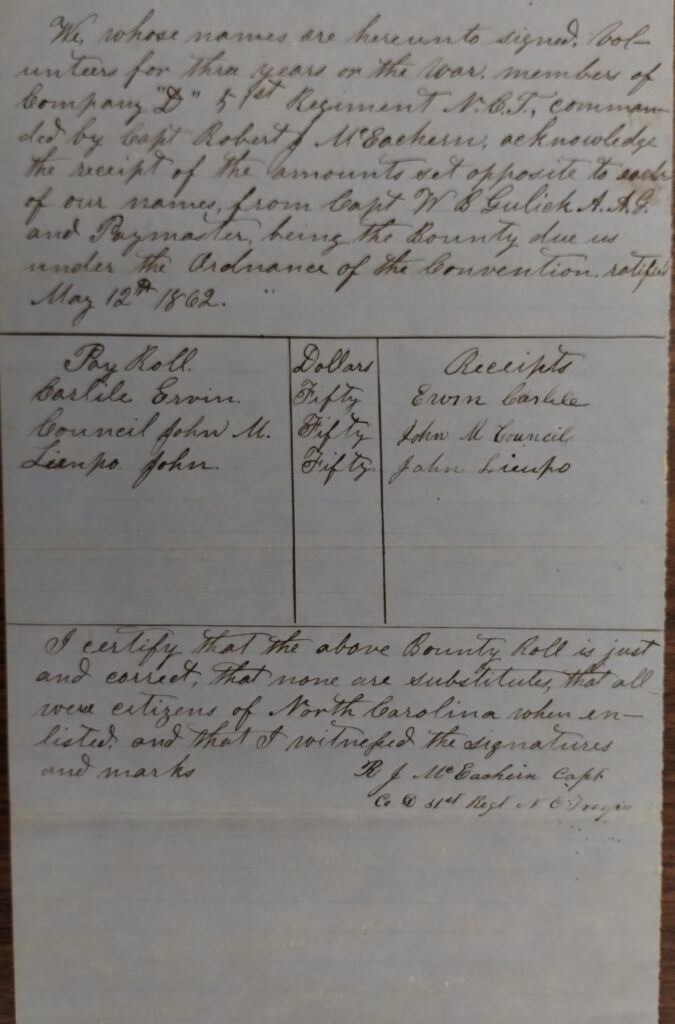 We, whose names are hereunto signed, Vol-
unteers for three years or the War, members of
Company "D" 51st Regiment N.C.T., comman-
ded by Capt Robert J McEachern, acknowledge
the receipt of the amounts set opposite to each
of our names, from Capt W B Gulick A.A.G.
and Paymaster, being the Bounty due us
under the Ordnance of the Convention, ratified
May 12th 1862.
Pay Roll. Dollars Receipts
Carlile Ervin. Fifty Ervin Carlile
Council John M. Fifty John M Council
John. Fifty John
I certify that the above Bounty Roll is just
and correct, that none are substitutes, that all
were citizens of North Carolina when en-
listed, and that I witnessed the signatures
and marks R J McEachern Capt
Co D 51st Regt N C Troops